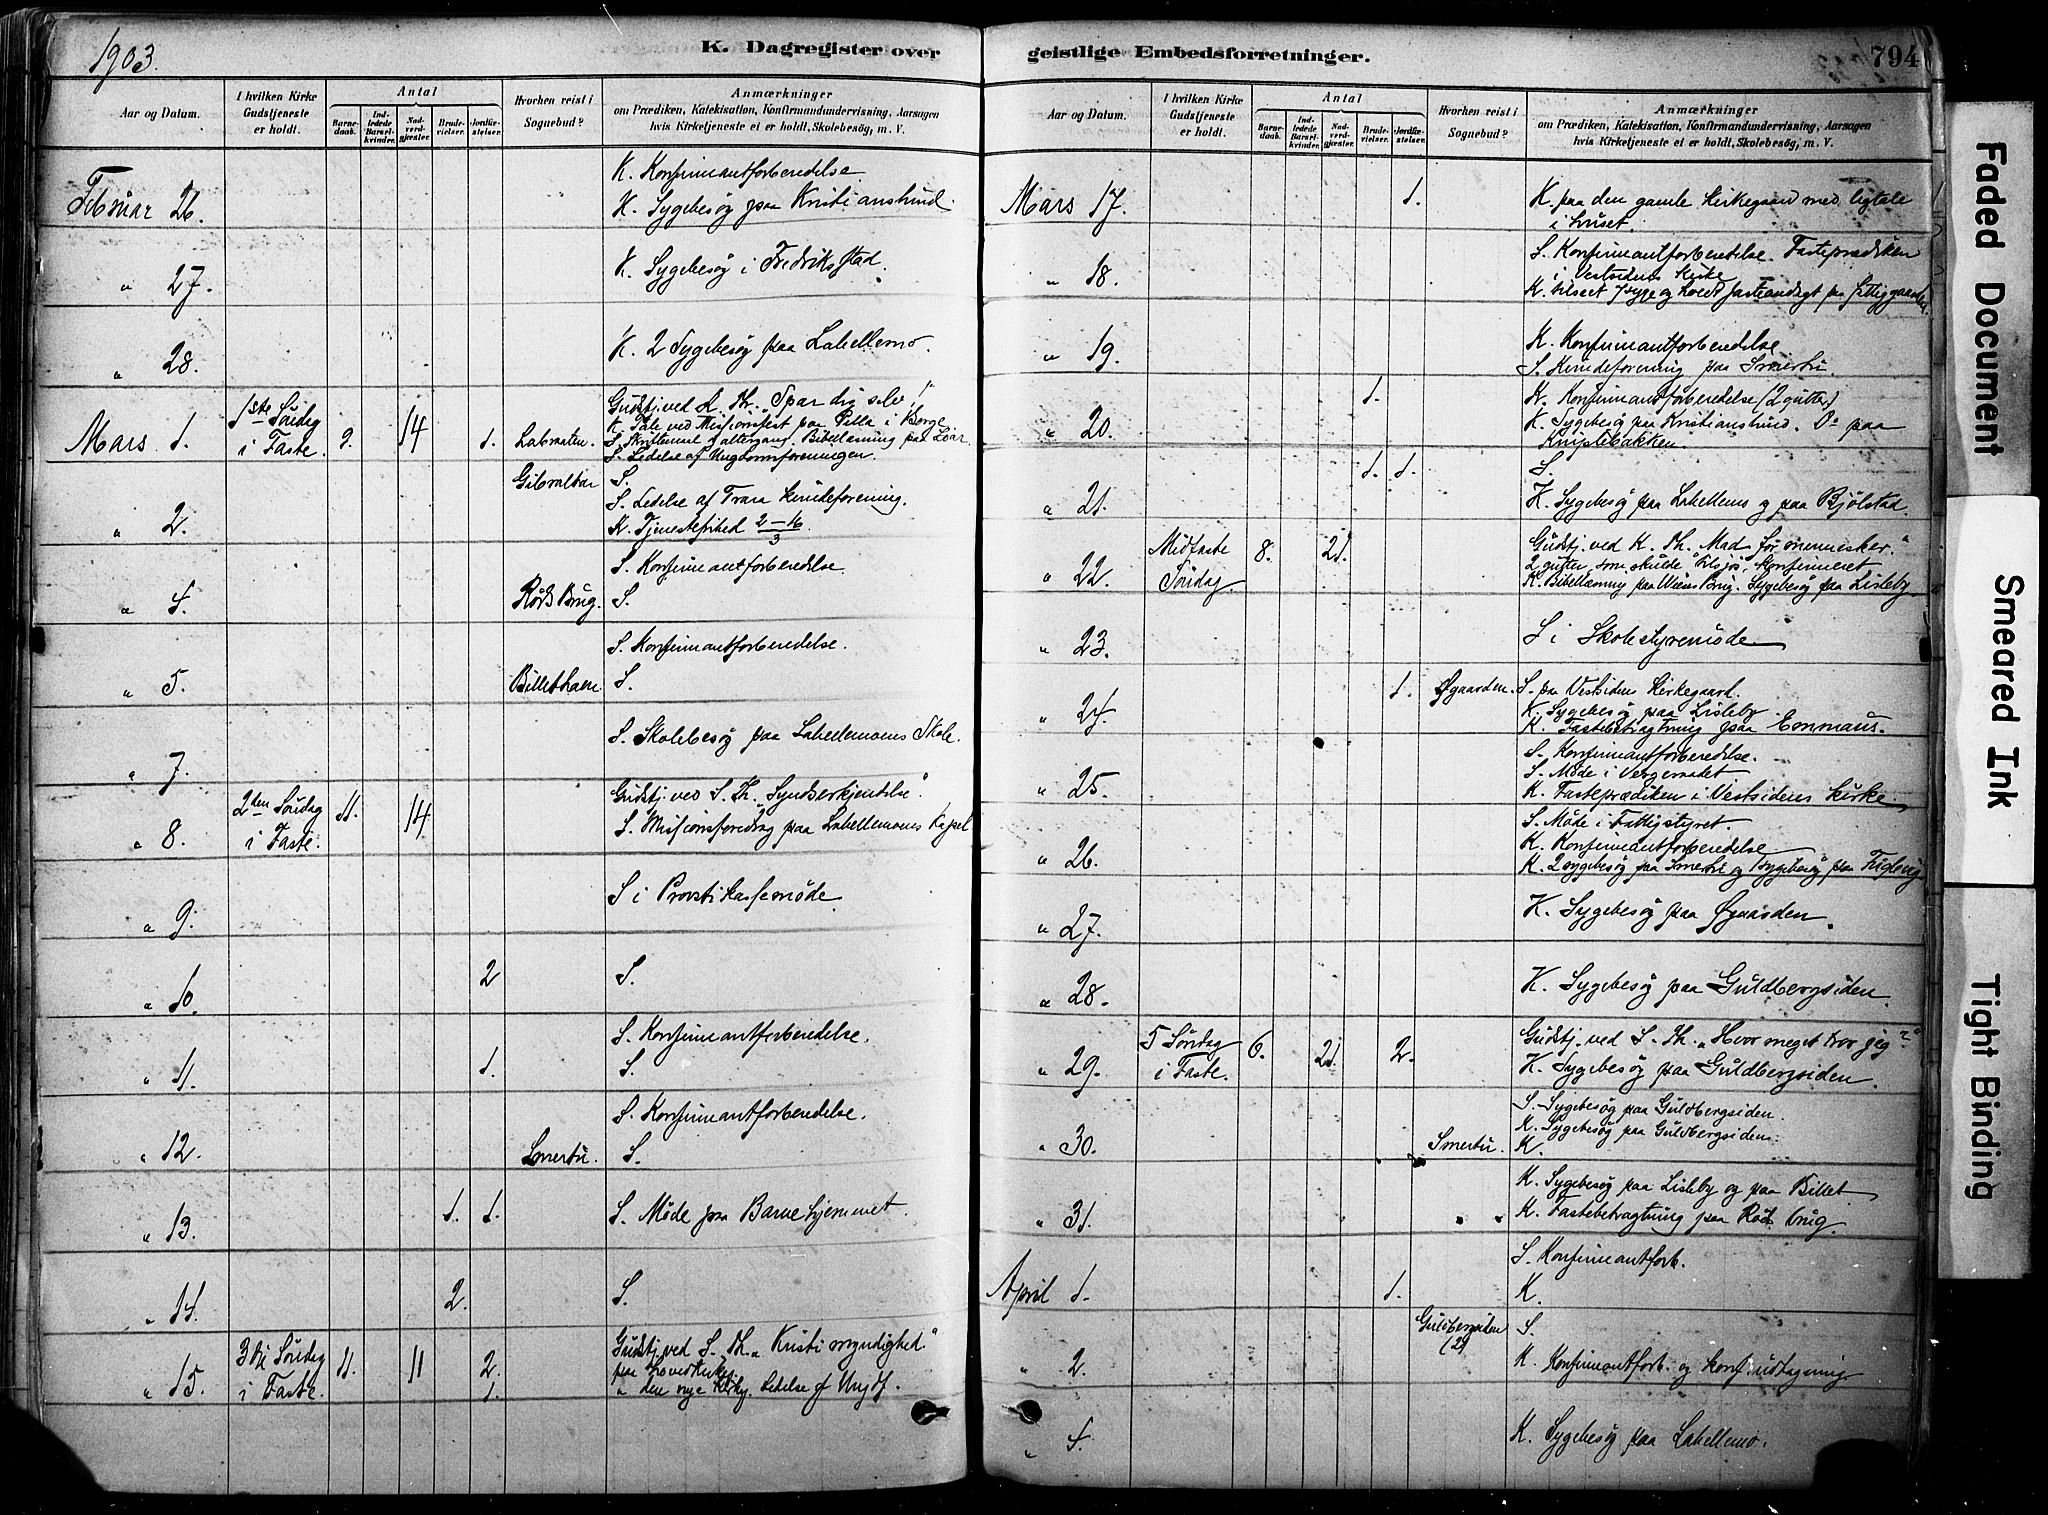 1903.
K. Dagregister over
geistlige Embedsforretninger.
794
Aar og Datum.
I hvilken Kirke Gudstjeneste er holdt.
Antal
Barnedaab.
Indledede Barselkvinder.
Nadverdgjester.
Brudevielser.
Jordfæstelser.
Hvorhen reist i Sognebud?
Anmærkninger
om Prædiken, Katekisation, Konfirmandundervisning, Aarsagen
hvis Kirketjeneste ei er holdt, Skolebesög, m. V.
K. Konfirmantforberedelse.
Februar 26. K. Sygebesög paa Kristianslund.
" 27. K. Sygebesög i Fredriksstad.
" 28. K. 2 Sygebesög paa Labellemo.
Mars 1. 1ste Söndag i Faste. 9. 14 1. Labraaten.
Gudstj. ved K. Th. "Spar dig selv!"
K. Tale ved Missionsfest paa Pella i Borge
S. Skriftemaal & altergang. Bibellæsning paa
S. Ledelse af Ungdomsforeningen.
" 2. Gibraltar S.
S. Ledelse af Trara kvindeforening.
K. Tjenestefrihed 2–16/3
S. Konfirmantforberedelse
" 4. Röds Brug. S.
S. Konfirmantforberedelse.
" 5. S.
" 7. S. Skolebesög paa Labellemoens Skole.
" 8. 2den Söndag i Faste. 11. 14
Gudstj. ved S. Th. "Syndserkjendelse".
S. Missionsforedrag paa Labellemoens Kapel
" 9. S i Provstikassemöde.
" 10. 2 S.
S. Konfirmantforberedelse.
" 11. 1. S.
S. Konfirmantforberedelse.
" 12. Smertu. S.
" 13. 1. 1. S. Möde paa Barnehjemmet
" 14. 2. S.
" 15. 3die Söndag i Faste. 11. 11 2. 1.
Gudstj. ved S. Th. "Kristi myndighed"
paa hovedkirkeg.
" den nye Kirkg. Ledelse af Ungdf.
Aar og Datum.
I hvilken Kirke Gudstjeneste er holdt.
Antal
Barnedaab.
Indledede Barselkvinder.
Nadverdgjester.
Brudevielser.
Jordfæstelser.
Hvorhen reist i Sognebud?
Anmærkninger
om Prædiken, Katekisation, Konfirmandundervisning, Aarsagen
hvis Kirketjeneste ei er holdt, Skolebesög, m. V.
Mars 17. 1. K. paa den gamle kirkegaard med ligtale
i huset.
S. Konfirmantforberedelse. Fasteprædiken
" 18. i Vestsidens kirke
K. tilseet 7 syge og holdt fasteandagt paa fattiggaarden.
" 19. K. Konfirmantforberedelse
S. Kvindeforening paa Smertu.
" 20. 1. K. Konfirmantforberedelse (2 gutter)
K. Sygebesög paa Kristianslund. Do paa
Kniplebakken.
" 21. 1. 1. S
K. Sygebesög paa Labellemo og paa Bjölstad.
" 22. Midfaste Söndag 8. 21.
Gudstj. ved K. Th. Mad for mennesker."
2 gutter, som skulde tilsjös, konfirmeret
K. Bibellæsning paa Wiens Brug. Sygebesög paa Lisleby
" 23. S i Skolestyremöde
" 24. 1. Øgaarden. S. paa Vestsiden Kirkegaard.
K. Sygebesög paa Lisleby
K. Fastebetragtning paa Emmaus.
S. Konfirmantforberedelse.
" 25. S. Möde i Vergeraadet
K. Fasteprædiken i Vestsidens kirke
S. Möde i Fattigstyret.
" 26. K. Konfirmantforberedelse
K. 2 sygebesög paa Smertu og sygebesög paa Fuglevig
" 27. K. Sygebesög paa Øgaarden.
" 28. K. Sygebesög paa Guldbergsiden.
" 29. 5 Söndag i Faste. 6. 21. 2.
Gudstj. ved S. Th. "Hvor meget tror jeg?"
K. Sygebesög paa Guldbergsiden.
S. Sygebesög paa Guldbergsiden.
K. Sygebesög paa Guldbergsiden.
" 30. Smertu. K.
K. Sygebesög paa Lisleby og paa Billet
" 31. K. Fastebetragtning paa Röds brug
S. Konfirmantforb.
April 1. 1. K.
Guldbergsiden (2) S.
" 2. K. Konfirmantforb. og konf. udtagning
" 4. K. Sygebesög paa Labellemo.
Faded Document
Smeared Ink
Tight Binding